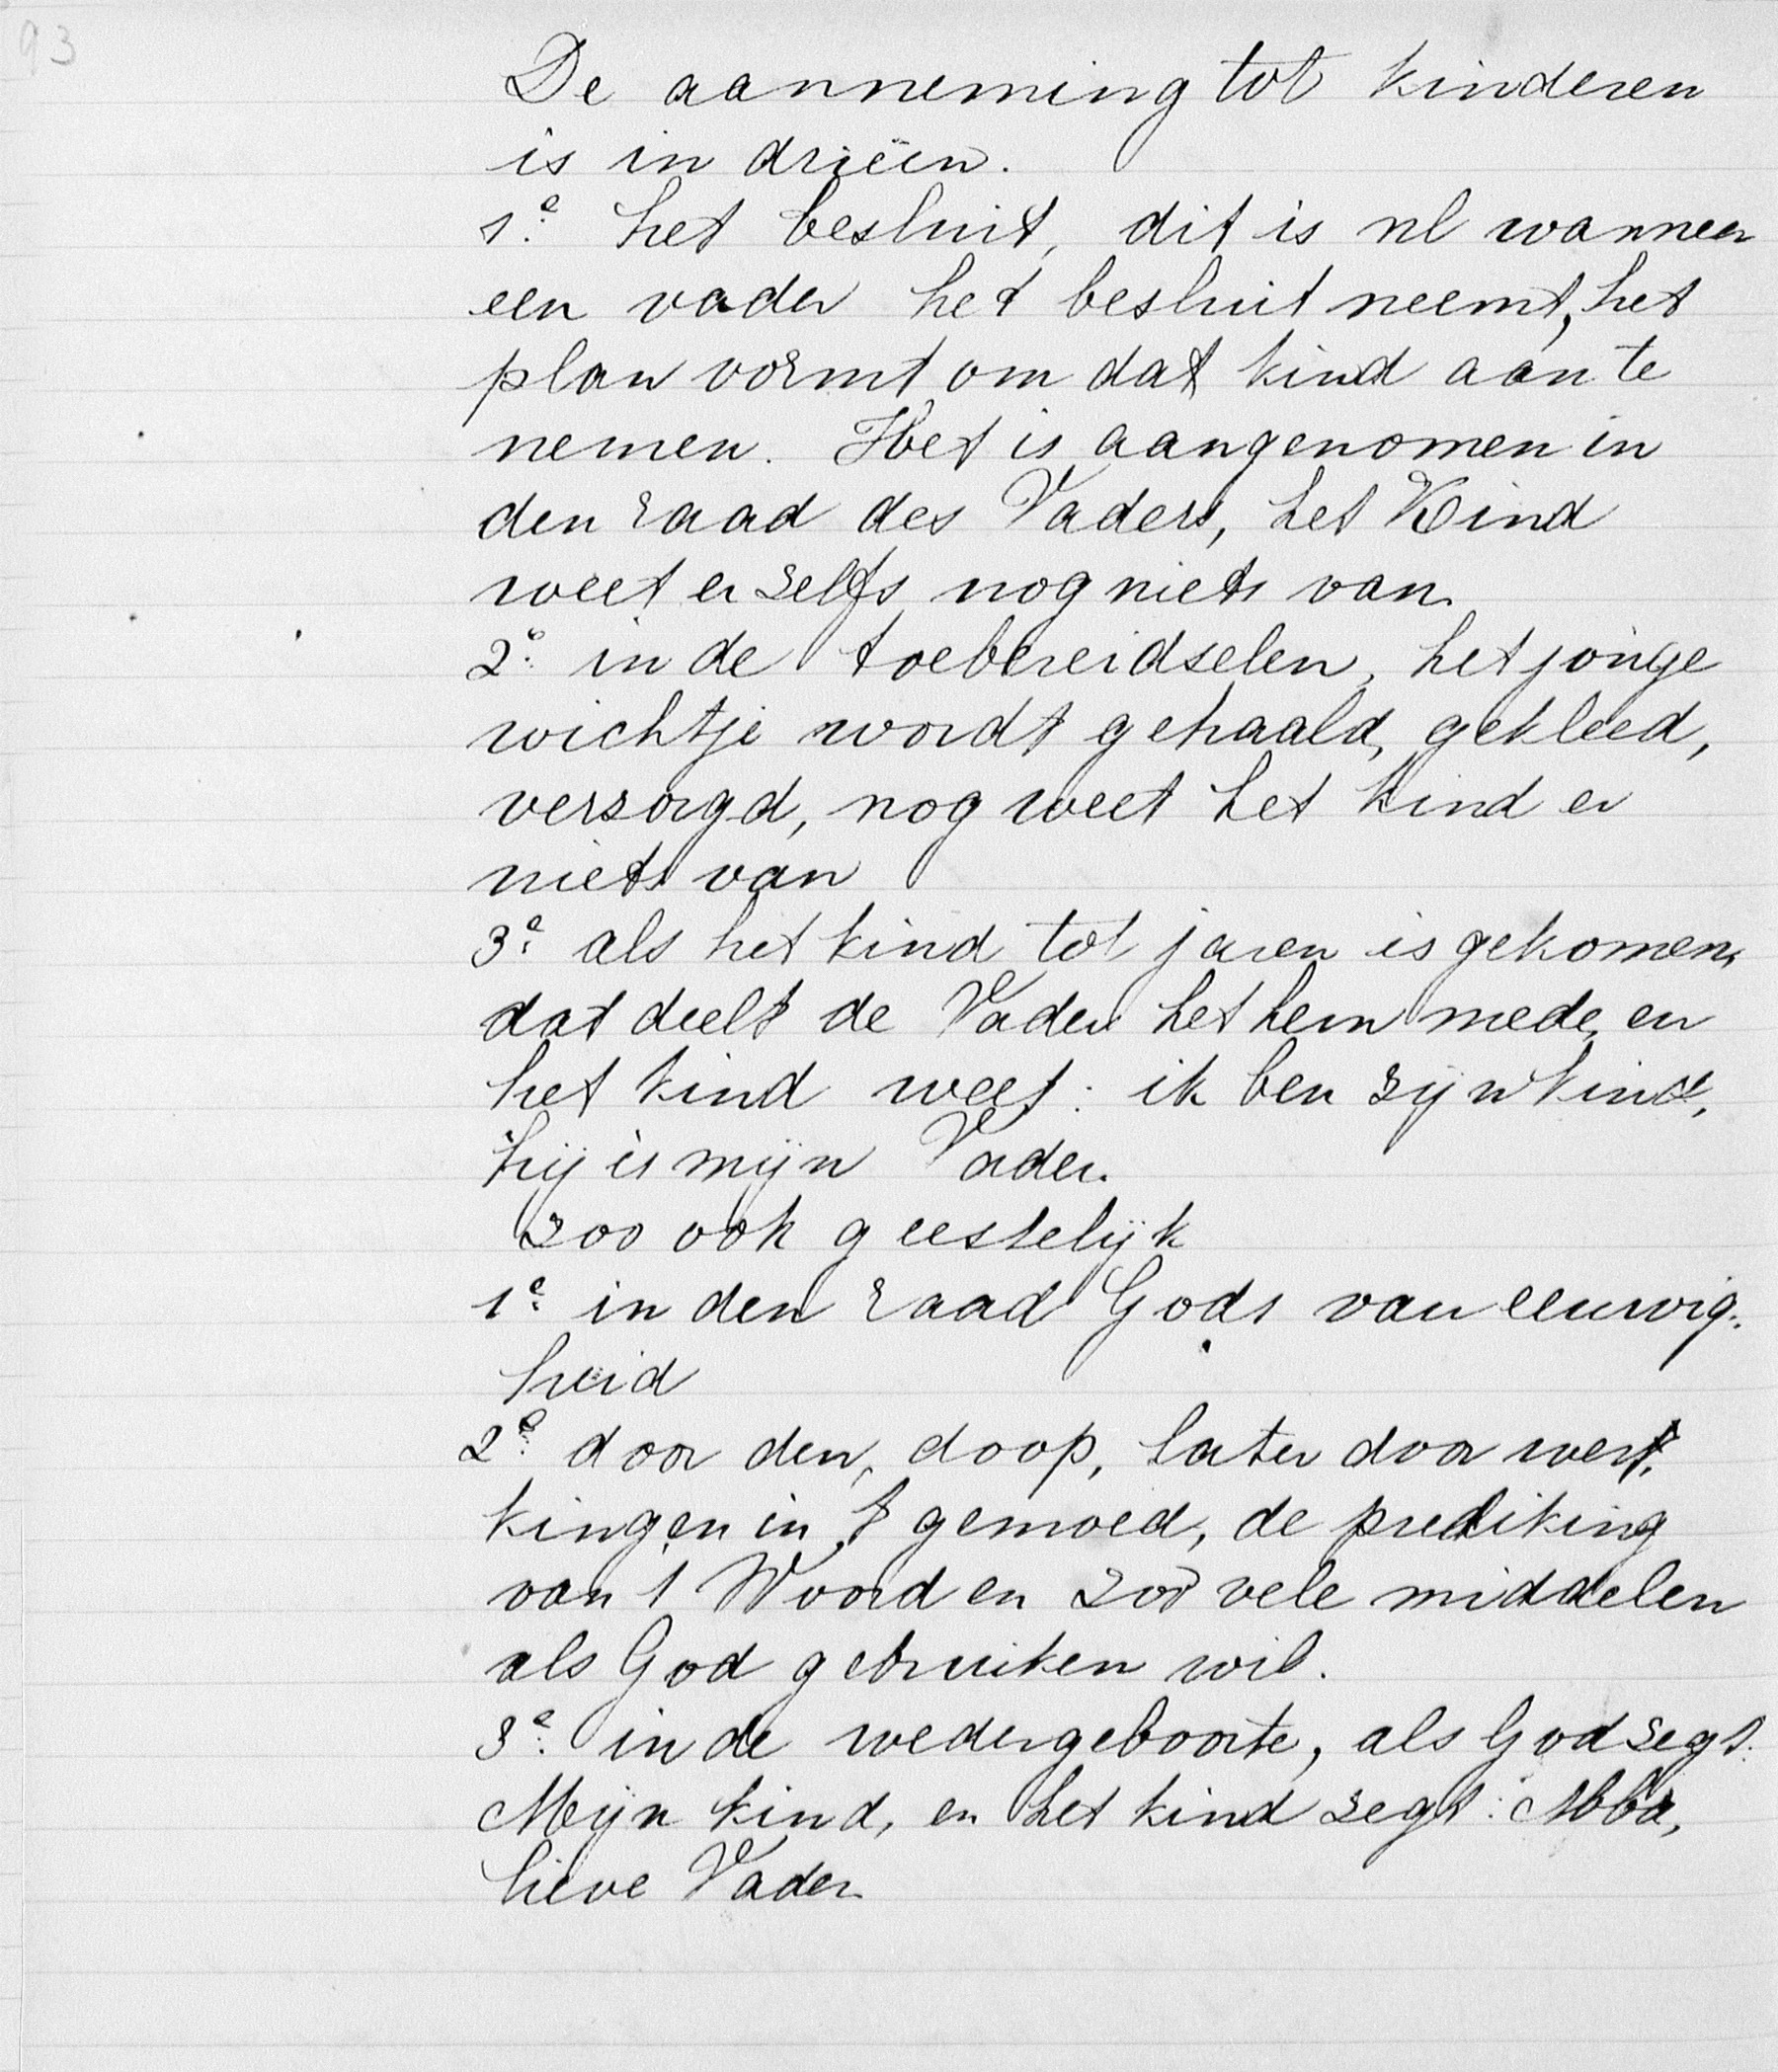 93
De aanneming tot kinderen
is in drieën.
1e het besluit, dit is nl wanneer
een vader het besluit neemt, het
plan vormt om dat kind aan te
nemen. Het is aangenomen in
den raad des Vaders, het Kind
weet er zelfs nog niets van.
2e in de toebereidselen, het jonge
wichtje wordt gehaald, gekleed,
verzorgd, nog weet het kind er
niets van
3e als het kind tot jaren is gekomen,
dat deelt de Vader het hem mede, en
het kind weet: ik ben zijn kind,
hij is mijn Vader.
zoo ook geestelijk
1e in den raad Gods van eeuwig-
heid
2e door den doop, later door wer-
kingen in 't gemoed, de prediking
van 't Woord en zoo vele middelen
als God gebruiken wil.
3e in de wedergeboorte, als God zegt:
Mijn kind, en het kind zegt: Abba,
lieve Vader